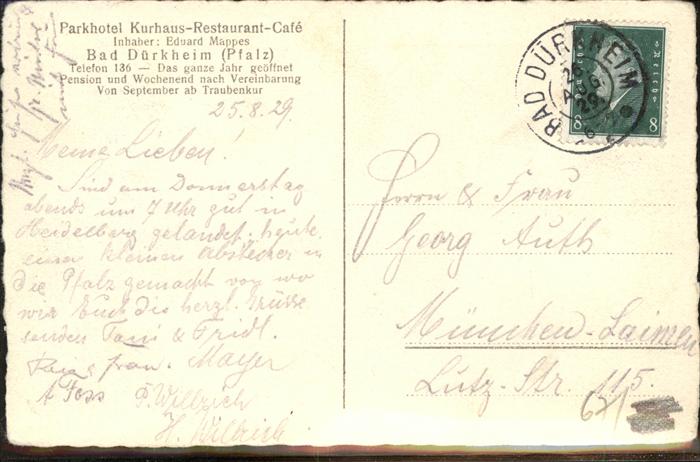 Parkhotel Kurhaus-Restaurant-Café
Inhaber: Eduard Mappes
Bad Dürkheim (Pfalz)
Telefon 136 — Das ganze Jahr geöffnet
Pension und Wochenend nach Vereinbarung
Von September ab Traubenkur
25.8.29.
Meine Lieben!
Sind am Donnerstag
abends um 7 Uhr gut in
Heidelberg gelandet. heute
einen kleinen Abstecher in
die Pfalz gemacht von wo
wir Euch die herzl. Grüsse
senden & Fridl.
Mayer
BAD DÜRKHEIM
26
AUG
29
8 8
Herrn & Frau
Georg Auth
München-Laim
Lutz-Str. 115